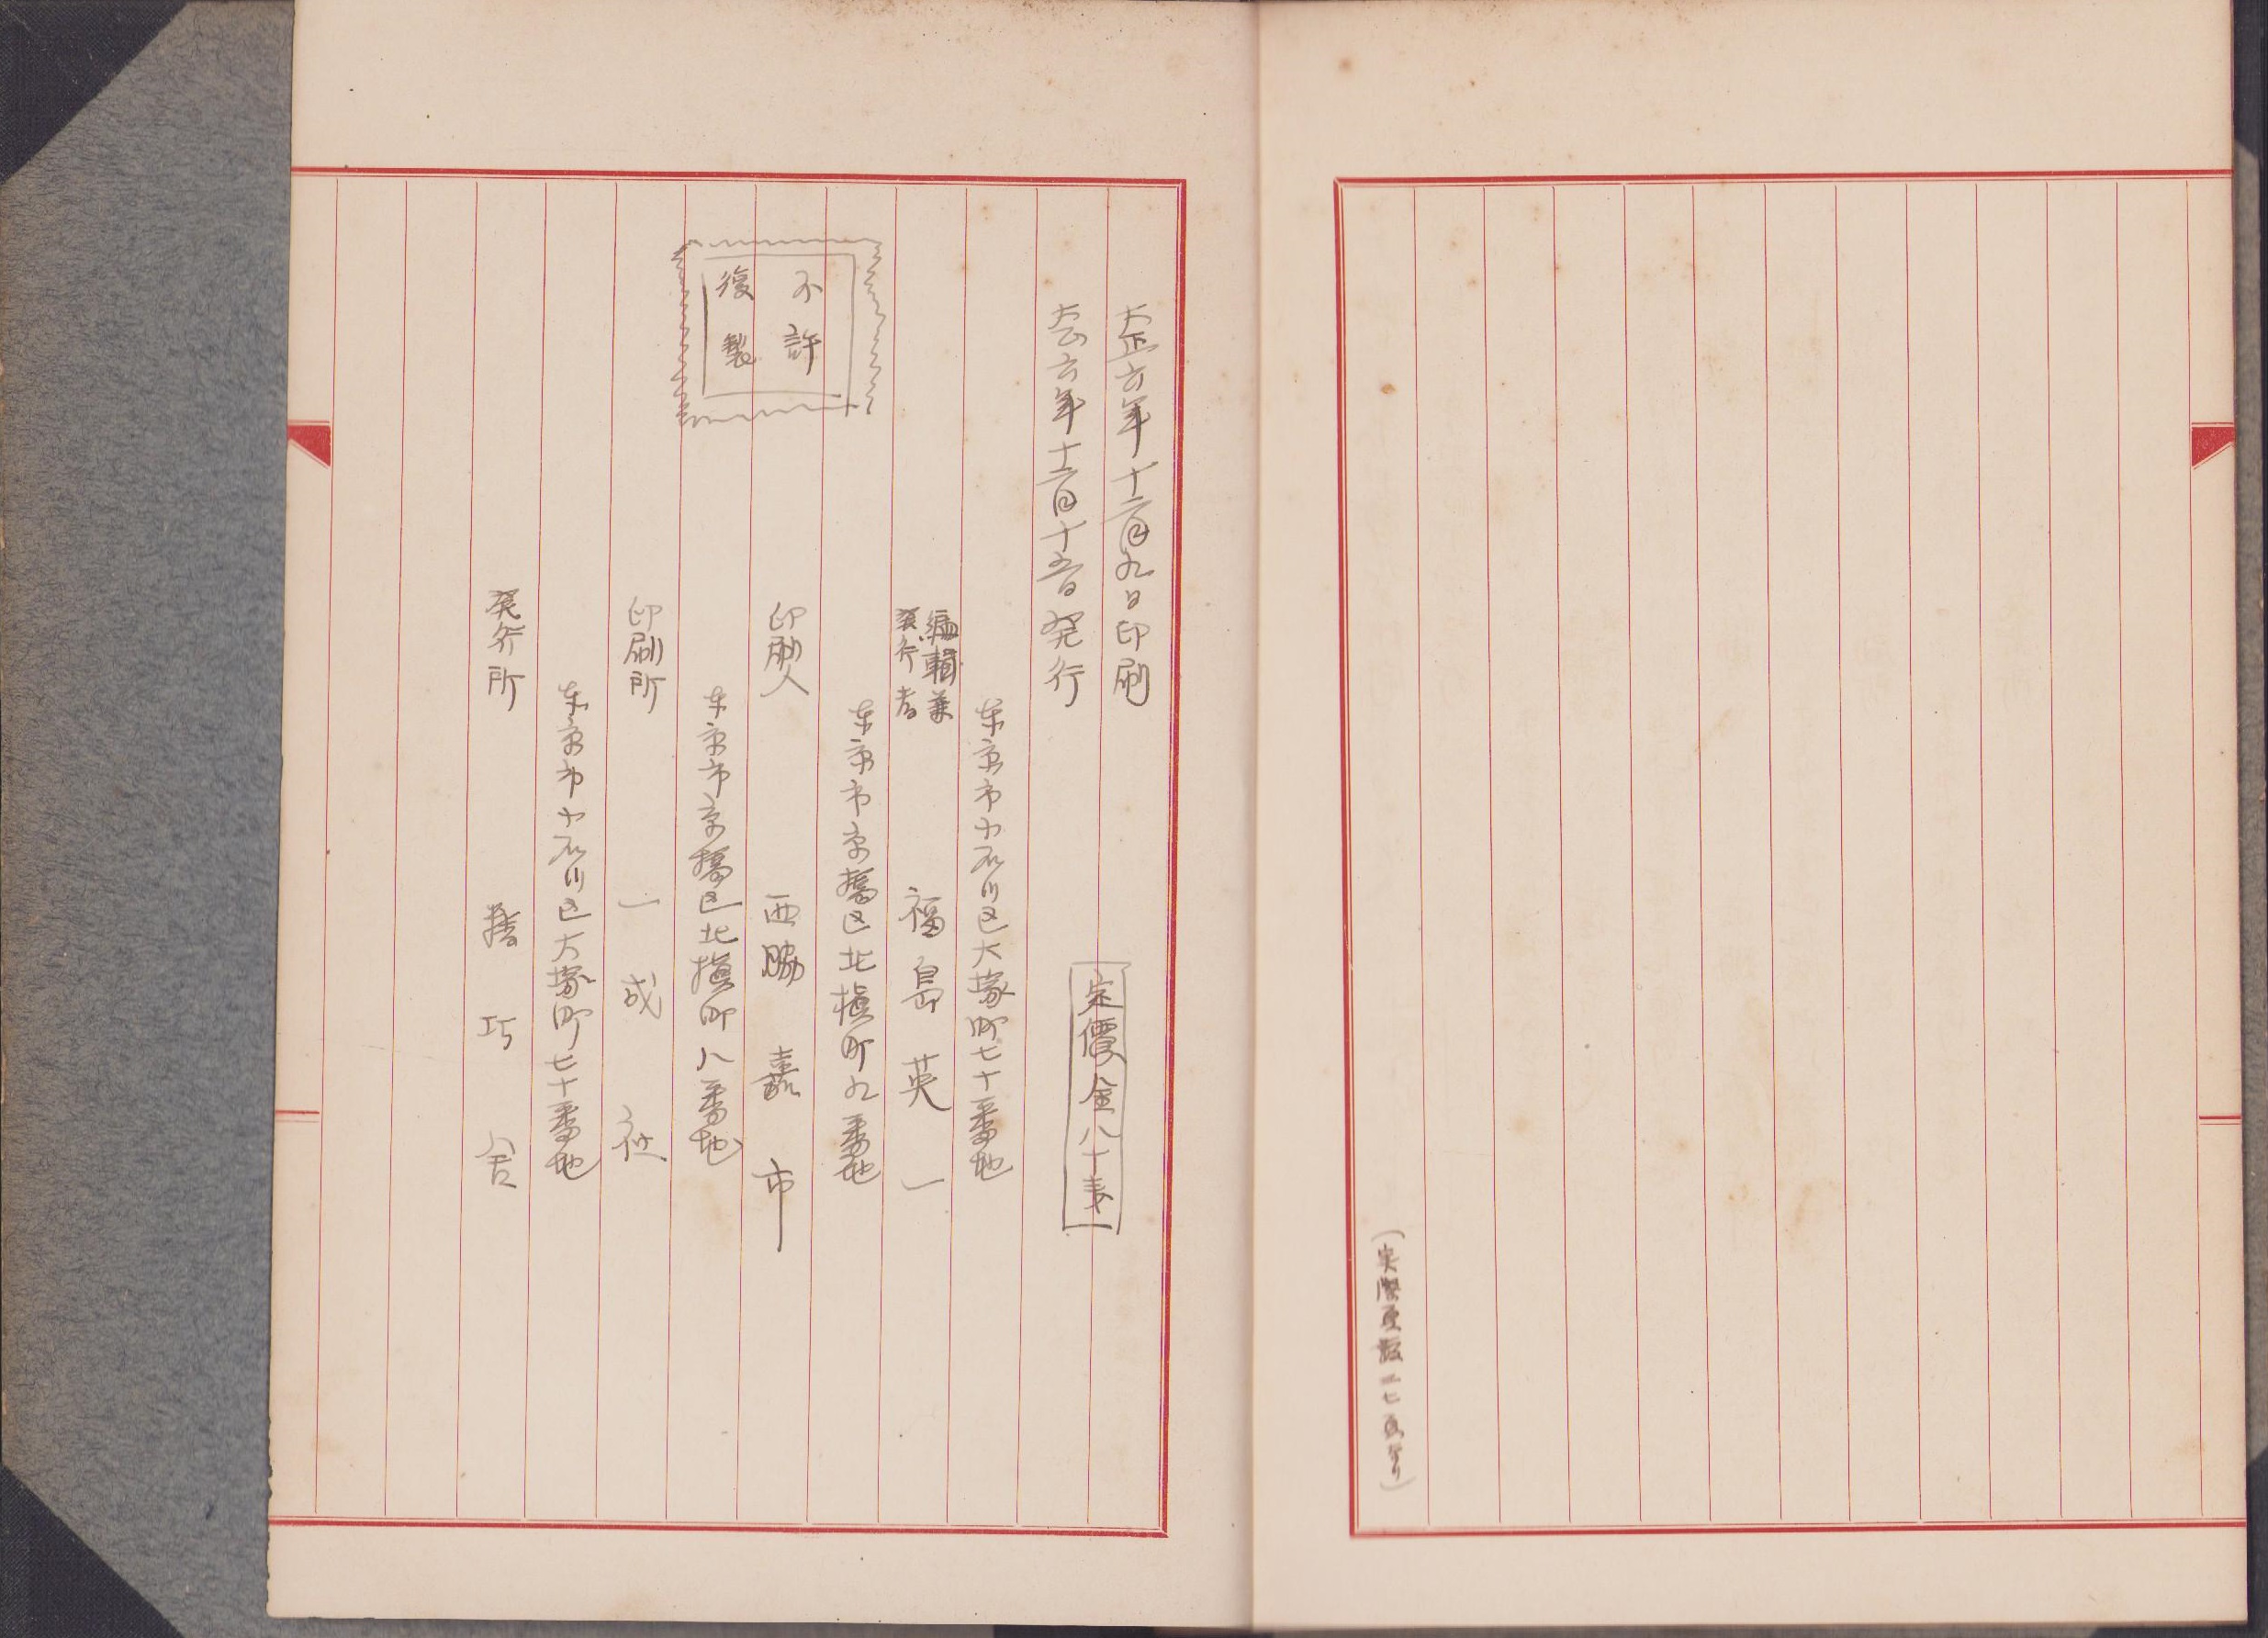 (実際頁数一七五頁ナリ)
大正六年十二月九日印刷
大正六年十二月十五日発行
定價金八十銭
東京市小石川区大塚町七十番地
編輯兼
発行者 福島英一
東京市京橋区北槇町九番地
印刷人 西脇嘉市
不許
復製
東京市京橋区北槇町八番地
印刷所 一成社
東京市小石川区大塚町七十番地
発行所 巧舎